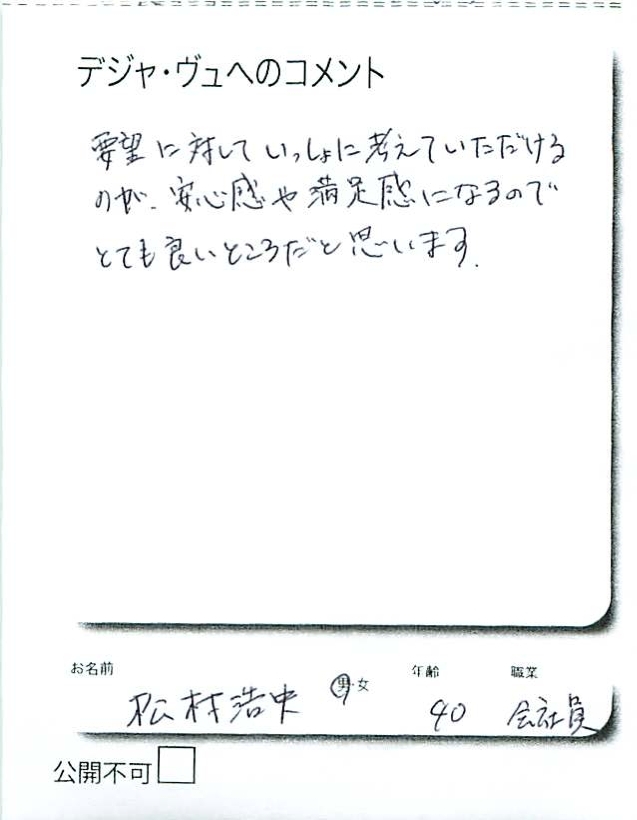 デジャ・ヴュへのコメント
要望に対していっしょに考えていただける
のが、安心感や満足感になるので
とても良いところだと思います.
お名前 男・女 年齢 職業
松村浩史 40 会社員
公開不可